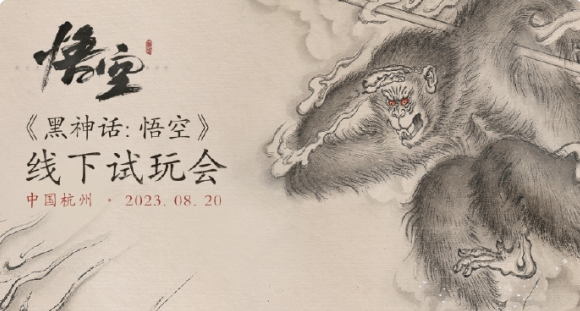 悟空
《黑神话:悟空》
线下试玩会
中国杭州 · 2023. 08. 20